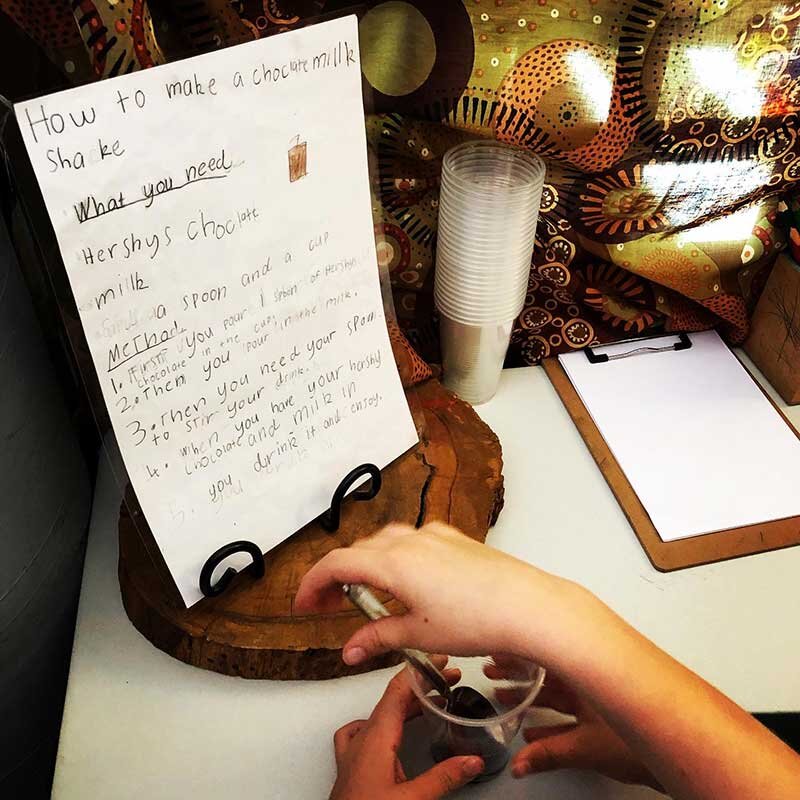 How to make a choclate milk
Shake
What you need
Hershys choclate
milk
a spoon and a cup
Method
1. First you pour 1 spoon of Hershys
chocolate in the cup.
2. Then you pour in the milk.
3. Then you need your spoon
to stir your drink.
4. when you have your hershy
choclate and milk in
you drink it and enjoy.
5.